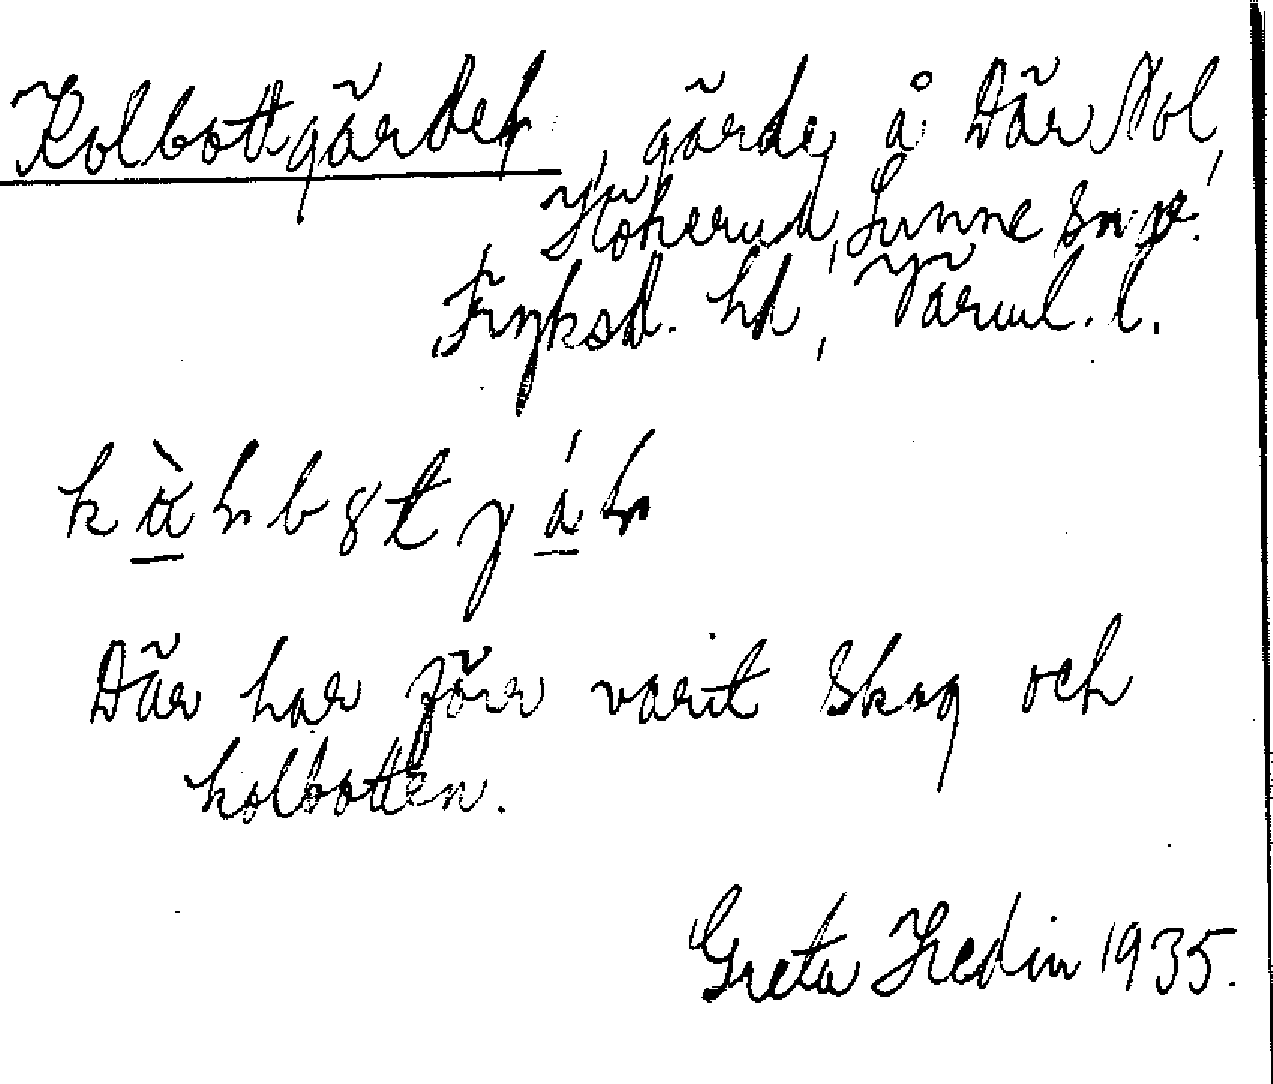 Kolbottgärdet, gärde å Där Nol,
Hökerud, Sunne sn,
Fryksd. hd, Värml. l.
Där har förr varit skog och
kolbotten.
Greta Hedin 1935.